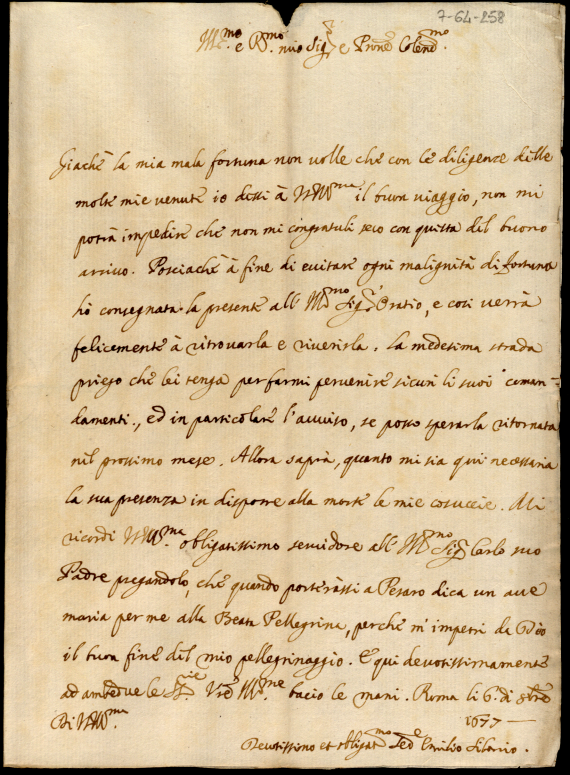 7-64-258
Ill.mo e R.mo mio Sig.r e Prone Colend.mo
Giachè la mia mala fortuna non volle che con le diligenze delle
molte mie venute io dessi à V.S. Ill.ma il buon viaggio, non mi
potrà impedire che non mi congratuli seco con questa del buono
arrivo. Posciachè à fine di evitare ogni malignità di fortuna
hò consegnata la presente all' Ill.mo Sig.r Oratio, e così verrà
felicemente à ritrovarla e riverirla. La medesima strada
priego che lei tenga per farmi pervenire sicuri li suoi coman-
damenti, ed in particolare l'avviso, se posso sperarla ritornata
nel prossimo mese. Allora saprà, quanto mi sia quì necessaria
la sua presenza in disporre alla morte le mie cosuccie. Mi
ricordi V.S. Ill.ma obligatissimo servidore all' Ill.mo Sig.r Carlo suo
Padre pregandolo, che quando porterassi a Pesaro dica un ave
maria per me alla Beata Pellegrina, perche m'impetri da Dio
il buon fine del mio pellegrinaggio. E qui devotissimamente
ad amedue le Vre Ill.me bacio le mani. Roma li 6. di 8bre
1677
Di V.S. Ill.ma
Devotissimo et obligat.mo Se.re Emilio